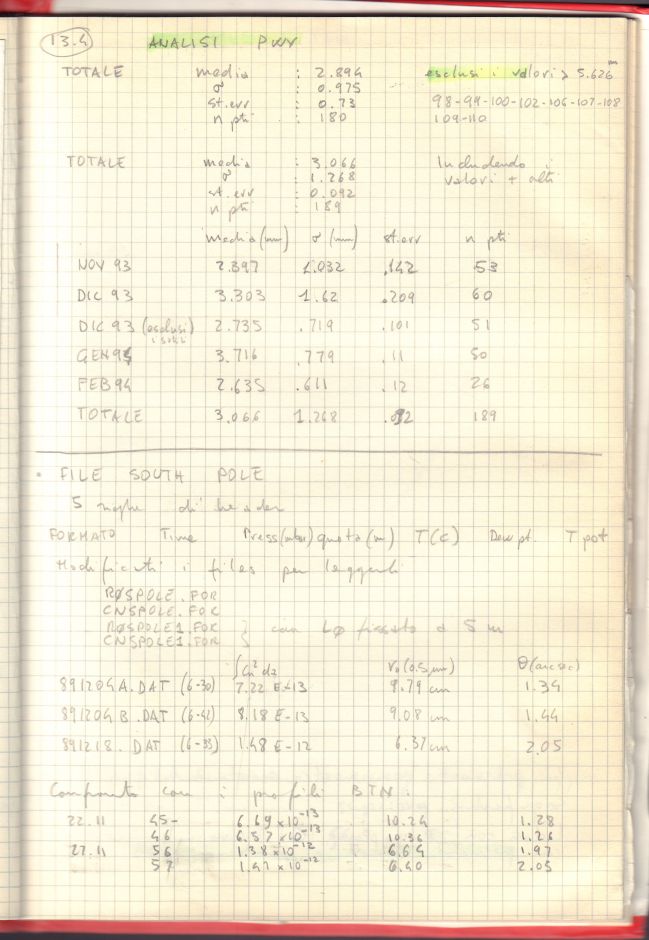 13.4 ANALISI PWV
TOTALE media : 2.894 esclusi i valori > 5.626 mm
σ : 0.975 98-99-100-102-106-107-108
st.err : 0.73 109-110
n pti : 180
TOTALE media : 3.066 Includendo i
σ : 1.268 valori + alti
st.err : 0.092
n pti : 189
media (mm) σ (mm) st.err n pti
NOV 93 2.397 1.032 .142 53
DIC 93 3.303 1.62 .209 60
DIC 93 (esclusi) 2.735 .719 .101 51
GEN 94 3.716 .779 .11 50
FEB 94 2.635 .611 .12 26
TOTALE 3.066 1.268 .092 189
• FILE SOUTH POLE
5 righe di header
FORMATO Time Press (mbar) quota (m) T(C) Dew pt. T pot
Modificati i files per leggerli
RØSPOLE.FOR
CNSPOLE.FOR
RØSPOLE1.FOR } con LØ fissato a 5 m
CNSPOLE1.FOR
∫Cn² dz r₀ (0.5 μm) θ (arcsec)
891204A.DAT (6-30) 7.22 E-13 9.79 cm 1.34
891204B.DAT (6-42) 8.18 E-13 9.08 cm 1.44
891218.DAT (6-33) 1.48 E-12 6.37 cm 2.05
Confronto con i profili BTN:
22.11 45- 6.69 x10⁻¹³ 10.24 1.28
46 6.57 x10⁻¹³ 10.36 1.26
27.11 56 1.38 x10⁻¹² 6.64 1.97
57 1.47 x10⁻¹² 6.40 2.05